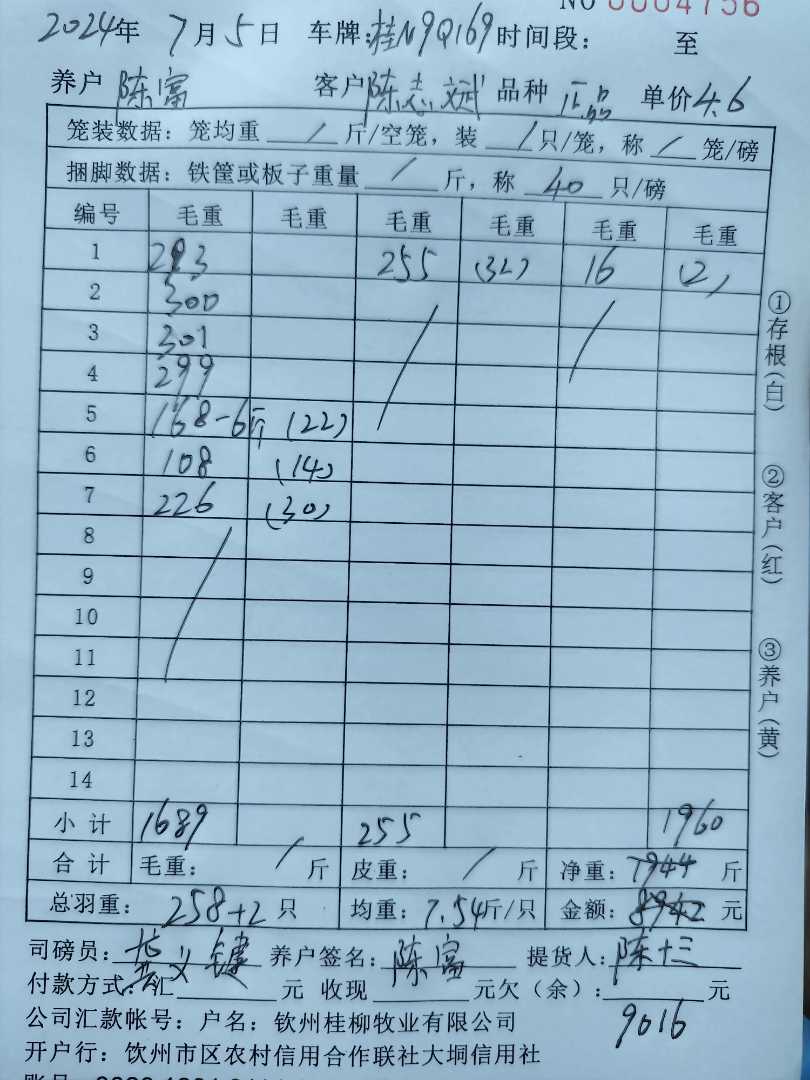 NO 0004756
2024年 7月5日 车牌:桂N9Q169 时间段: 至
养户 陈富 客户 陈志斌 品种 正品 单价 4.6
笼装数据: 笼均重 / 斤/空笼, 装 / 只/笼, 称 / 笼/磅
捆脚数据: 铁筐或板子重量 / 斤, 称 40 只/磅
编号 毛重 毛重 毛重 毛重 毛重 毛重
1 293 255 (32) 16 (2)
2 300 / /
3 301
4 299
5 168-6斤 (22)
6 108 (14)
7 226 (30)
8 /
9
10
11
12
13
14
小计 1689 255 1960
合计 毛重: / 斤 皮重: / 斤 净重: 1944 斤
总羽重: 258+2 只 均重: 7.54斤/只 金额: 8942 元
司磅员: 义键 养户签名: 陈富 提货人: 陈十三
付款方式: 汇 元 收现 元欠(余): 元
公司汇款帐号: 户名: 钦州桂柳牧业有限公司 9016
开户行: 钦州市区农村信用合作联社大垌信用社
①存根(白)
②客户(红)
③养户(黄)